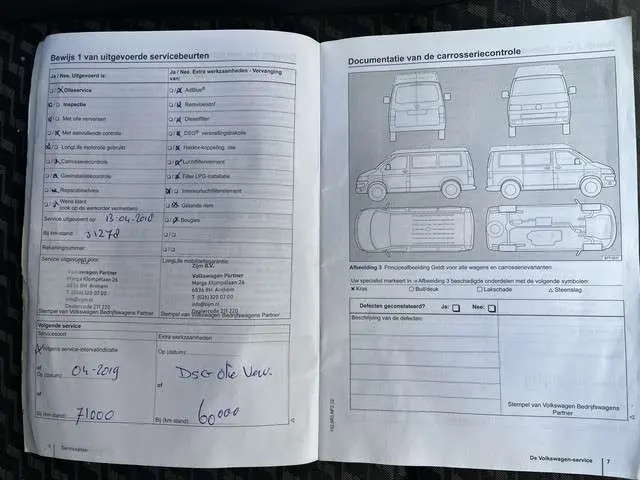 Bewijs 1 van uitgevoerde servicebeurten
Ja / Nee. Uitgevoerd is:
Ja / Nee. Extra werkzaamheden - Vervanging van:
Olieservice
AdBlue®
Inspectie
Remvloeistof
Met olie verversen
Dieselfilter
Met aanvullende controle
DSG® versnellingsbakolie
LongLife motorolie gebruikt
Haldex-koppeling: olie
Carrosseriecontrole
Luchtfilterelement
Gasinstallatiecontrole
Filter LPG-installatie
Reparatieadvies
Interieurluchtfilterelement
Wens klant
(ook op de werkorder vermelden)
Getande riem
Service uitgevoerd op: 13-04-2018
Bougies
Bij km-stand: 31278
Rekeningnummer:
Service uitgevoerd door:
LongLife mobiliteitsgarantie:
Zijm B.V.
Volkswagen Partner
Marga Klompelaan 26
6836 BH Arnhem
T (026) 320 07 00
Dealercode 211 220
Stempel van Volkswagen Bedrijfswagens Partner
Volkswagen Partner
Marga Klompelaan 26
6836 BH Arnhem
T (026) 320 07 00
Dealercode 211 220
Stempel van Volkswagen Bedrijfswagens Partner
Volgende service
Servicesoort
Extra werkzaamheden
Volgens service-intervalindicatie
Op (datum):
of
Op (datum): 04-2019
DSG olie Verv.
of
of
Bij (km-stand): 71000
Bij (km-stand): 60000
Documentatie van de carrosseriecontrole
Afbeelding 3 Principeafbeelding: Geldt voor alle wagens en carrosserievarianten
Uw specialist markeert in ⇒ Afbeelding 3 beschadigde onderdelen met de volgende symbolen:
× Kras
□ Buil/deuk
○ Lakschade
△ Steenslag
Defecten geconstateerd?
Ja:
Nee:
Beschrijving van de defecten:
Stempel van Volkswagen Bedrijfswagens
Partner
De Volkswagen-service 7